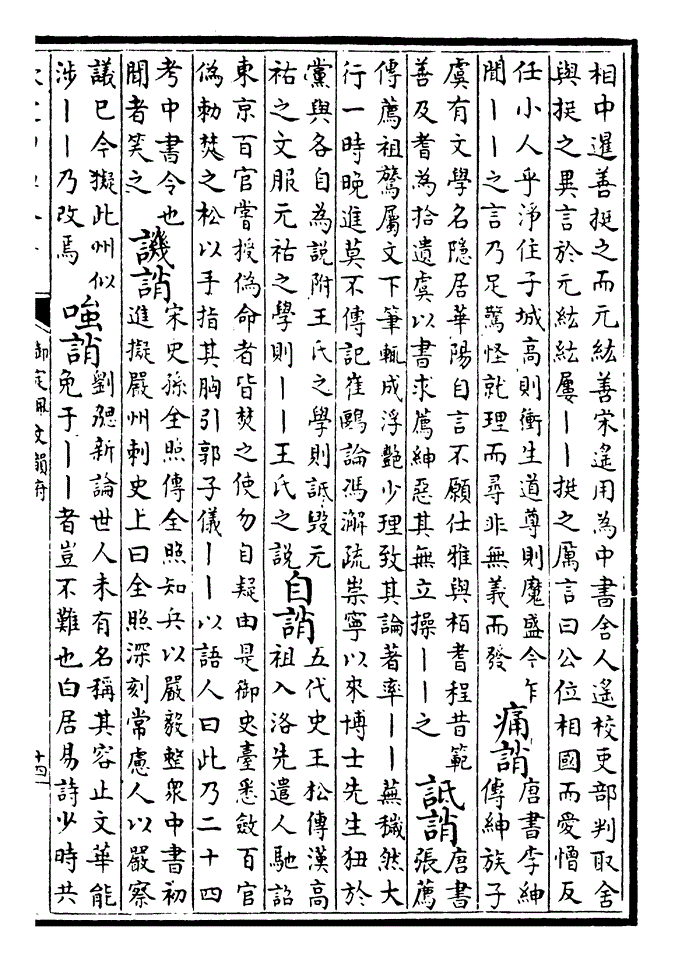 相中暹善挺之而元紘善宋遙用為中書舍人遙校吏部判取舍
與挺之異言於元紘紘屢丨丨挺之厲言曰公位相國而愛憎反
任小人乎淨住子城高則衝生道尊則魔盛今乍
聞丨丨之言乃足驚怪就理而尋非無義而發
痛誚
唐書李紳
傳紳族子
虞有文學名隱居華陽自言不願仕雅與栢耆程昔範
善及耆為拾遺虞以書求薦紳惡其無立操丨丨之
詆誚
唐書
張薦
傳薦祖鷟屬文下筆輒成浮艷少理致其論著率丨丨蕪穢然大
行一時晚進莫不傳記崔鷗論馮澥疏崇寧以來博士先生狃於
黨與各自為說附王氏之學則詆毀元
祐之文服元祐之學則丨丨王氏之說
自誚
五代史王松傳漢高
祖入洛先遣人馳詔
東京百官嘗授偽命者皆焚之使勿自疑由是御史臺悉斂百官
偽勅焚之松以手指其胸引郭子儀丨丨以語人曰此乃二十四
考中書令也
聞者笑之
譏誚
宋史孫全照傳全照知兵以嚴毅整衆中書初
進擬嚴州刺史上曰全照深刻常慮人以嚴察
議已今擬此州似
涉丨丨乃改焉
嗤誚
劉勰新論世人未有名稱其容止文華能
免于丨丨者豈不難也白居易詩少時共
御定佩文韻府
十四